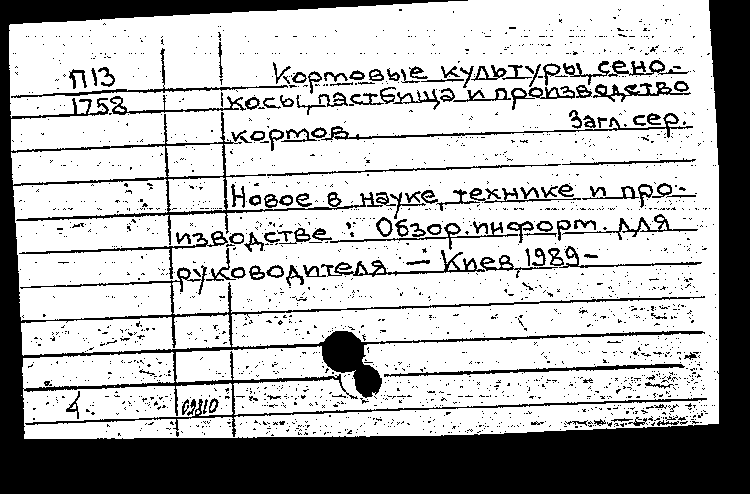 П13
1758
Кормовые культуры, сено-
косы, пастбища и производство
кормов. Загл. сер.
Новое в науке, технике и про-
изводстве : Обзор. информ. для
руководителя. — Киев, 1989 –
4.
09810